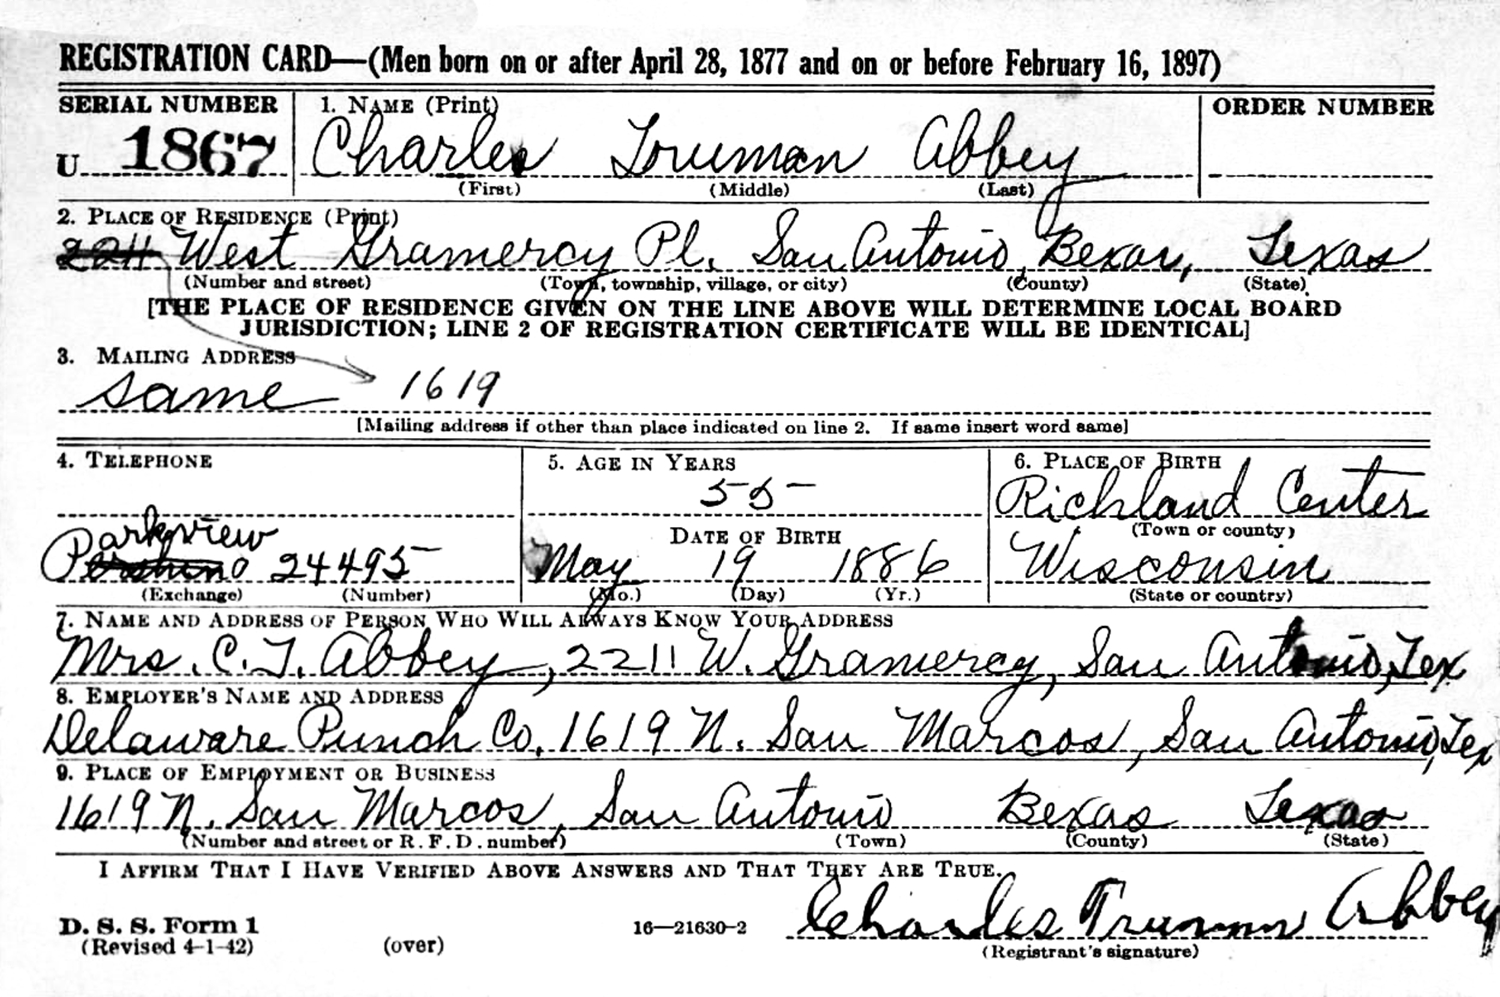 REGISTRATION CARD—(Men born on or after April 28, 1877 and on or before February 16, 1897)
SERIAL NUMBER 1. NAME (Print) ORDER NUMBER
U 1867 Charles Truman Abbey
(First) (Middle) (Last)
2. PLACE OF RESIDENCE (Print)
2211 West Gramercy Pl. San Antonio Bexar, Texas
(Number and street) (Town, township, village, or city) (County) (State)
[THE PLACE OF RESIDENCE GIVEN ON THE LINE ABOVE WILL DETERMINE LOCAL BOARD
JURISDICTION; LINE 2 OF REGISTRATION CERTIFICATE WILL BE IDENTICAL]
3. MAILING ADDRESS
same 1619
[Mailing address if other than place indicated on line 2. If same insert word same]
4. TELEPHONE 5. AGE IN YEARS 6. PLACE OF BIRTH
55 Richland Center
DATE OF BIRTH (Town or county)
Parkview
Pershing 24495 May 19 1886 Wisconsin
(Exchange) (Number) (Mo.) (Day) (Yr.) (State or country)
7. NAME AND ADDRESS OF PERSON WHO WILL ALWAYS KNOW YOUR ADDRESS
Mrs. C.T. Abbey, 2211 W. Gramercy, San Antonio, Tex
8. EMPLOYER'S NAME AND ADDRESS
Delaware Punch Co. 1619 N. San Marcos, San Antonio, Tex
9. PLACE OF EMPLOYMENT OR BUSINESS
1619 N. San Marcos, San Antonio Bexas Texas
(Number and street or R. F. D. number) (Town) (County) (State)
I AFFIRM THAT I HAVE VERIFIED ABOVE ANSWERS AND THAT THEY ARE TRUE.
D. S. S. Form 1
(Revised 4-1-42) (over) 16—21630-2 Charles Truman Abbey
(Registrant's signature)